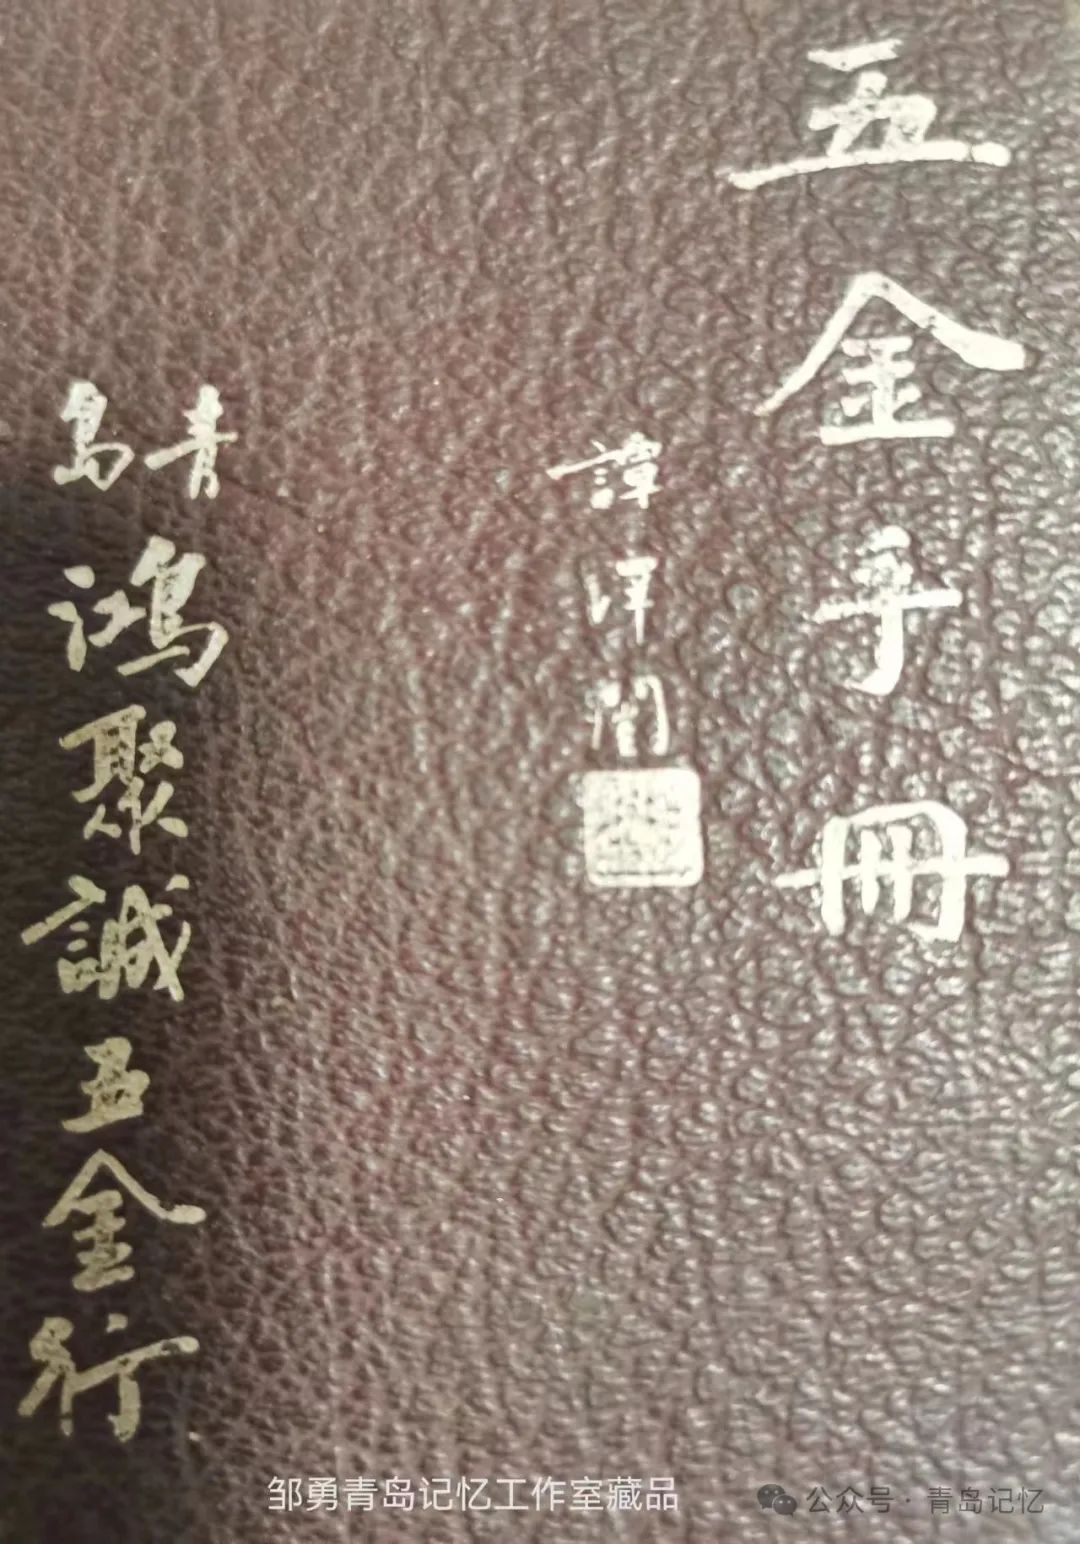 五金手冊
譚澤闓
青島
鴻聚誠五金行
邹勇青岛记忆工作室藏品
公众号·青岛记忆